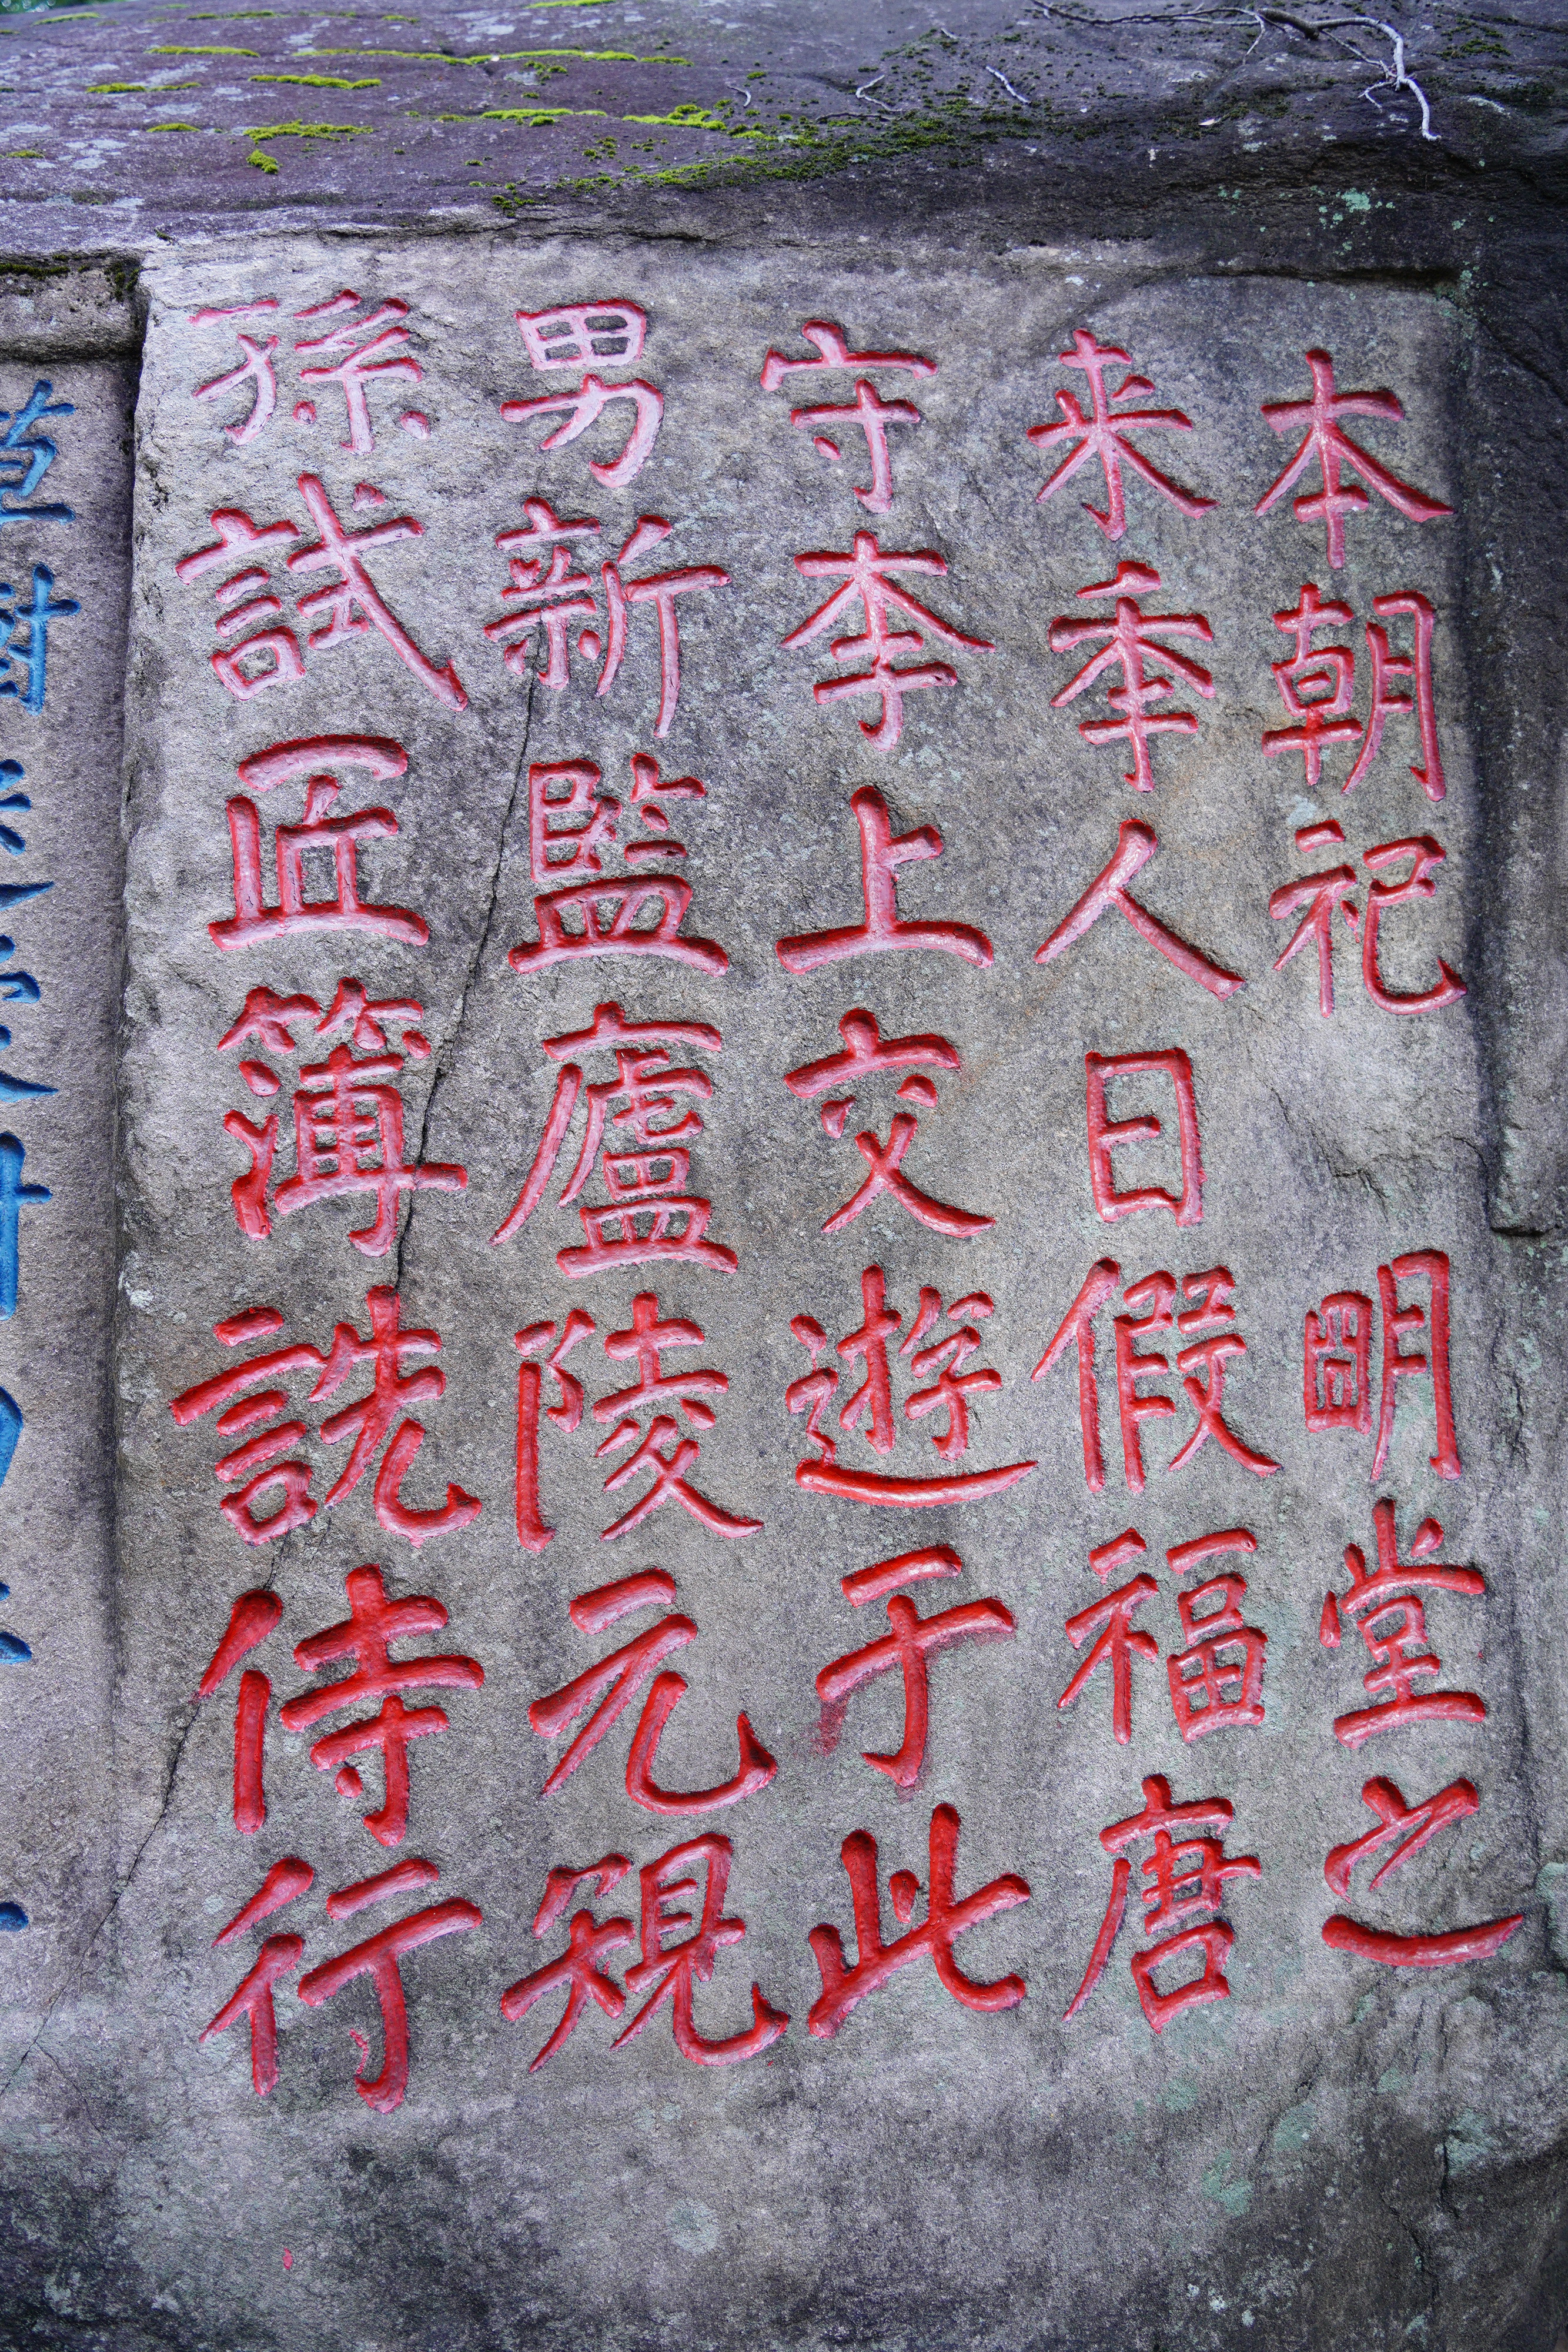 本朝祀 明堂之
来秊人日假福唐
守李上交遊于此
男新監廬陵元䂓
孫試匠簿詵侍行